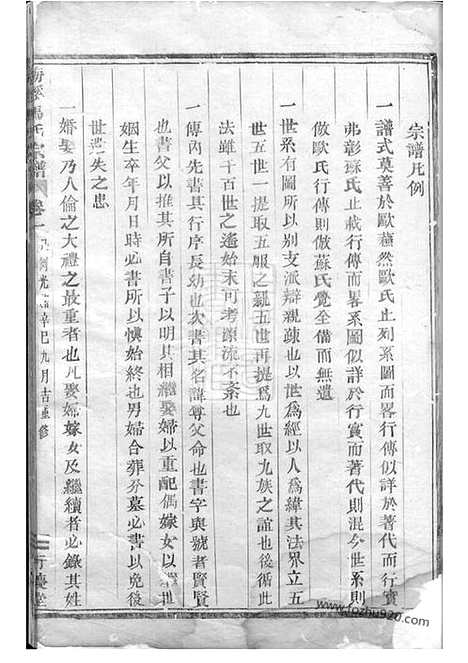 宗譜凡例
一譜式莫善於歐蘓然歐氏止列系圖而畧行傳似詳於著代而行實
弗彰蘇氏止載行傳而畧系圖似詳於行實而著代則混今世系則
倣歐氏行傳則倣蘇氏覺全備而無遺
一世系有圖所以别支派辯親疎也以世為經以人為緯其法界立五
世五世一提取五服之親五世再提為九世取九族之誼也後循此
法雖千百世之遙始末可考源流不紊也
一傳內先書其行序長幼也次書其名諱尊父命也書字與號者賢賢
也書父以推其所自書子以明其相繼娶婦以重配偶嫁女以聯世
姻生卒年月日時必書所以慎始終也男婦合葬分墓必書以免後
世遺失之患
一婚娶乃人倫之大禮之最重者也凡娶婦嫁女及繼續者必錄其姓
氏宗譜 卷一 凡例 光緒辛巳九月吉重修
www.fozhu920.com